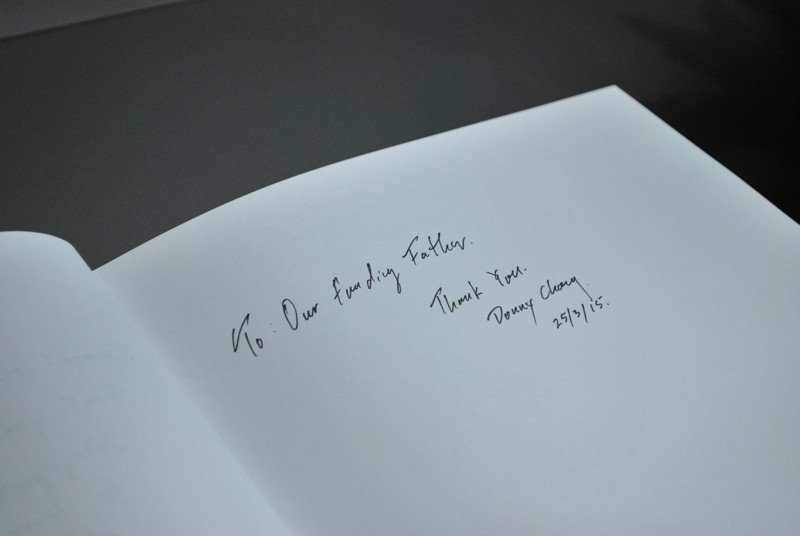 To: Our Funding Father.
Thank You.
Donny Chong.
25/3/15.